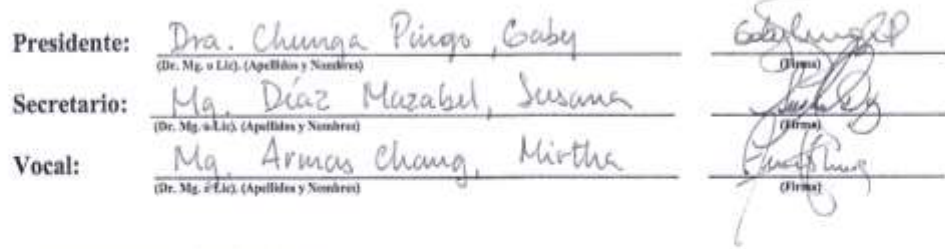 Presidente: Dra. Chunga Pingo, Gaby
(Dr. Mg. o Lic). (Apellidos y Nombres) (Firma)
Secretario: Mg. Díaz Mazabel, Susana
(Dr. Mg. o Lic). (Apellidos y Nombres) (Firma)
Vocal: Mg. Armas Chang, Mirtha
(Dr. Mg. o Lic). (Apellidos y Nombres) (Firma)